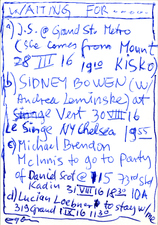 WAITING FOR -----
a) J.S. @ Grand St. Metro
(she comes from Mount
28 III 16 1910 KISKO)
b) SIDNEY BOWEN (W/
Andrea Leminske) at
Vert 30 VIII 16
Le Singe NY Chelsea 1955
c) Michael Brendon
McInnis to go to Party
of Daniel Scot @ 115 73rd Str
Kadin 31 VIII 16 1830 10A
d) Lucian Loebner to stay w/ me
319 Grand 1 IX 16 1130